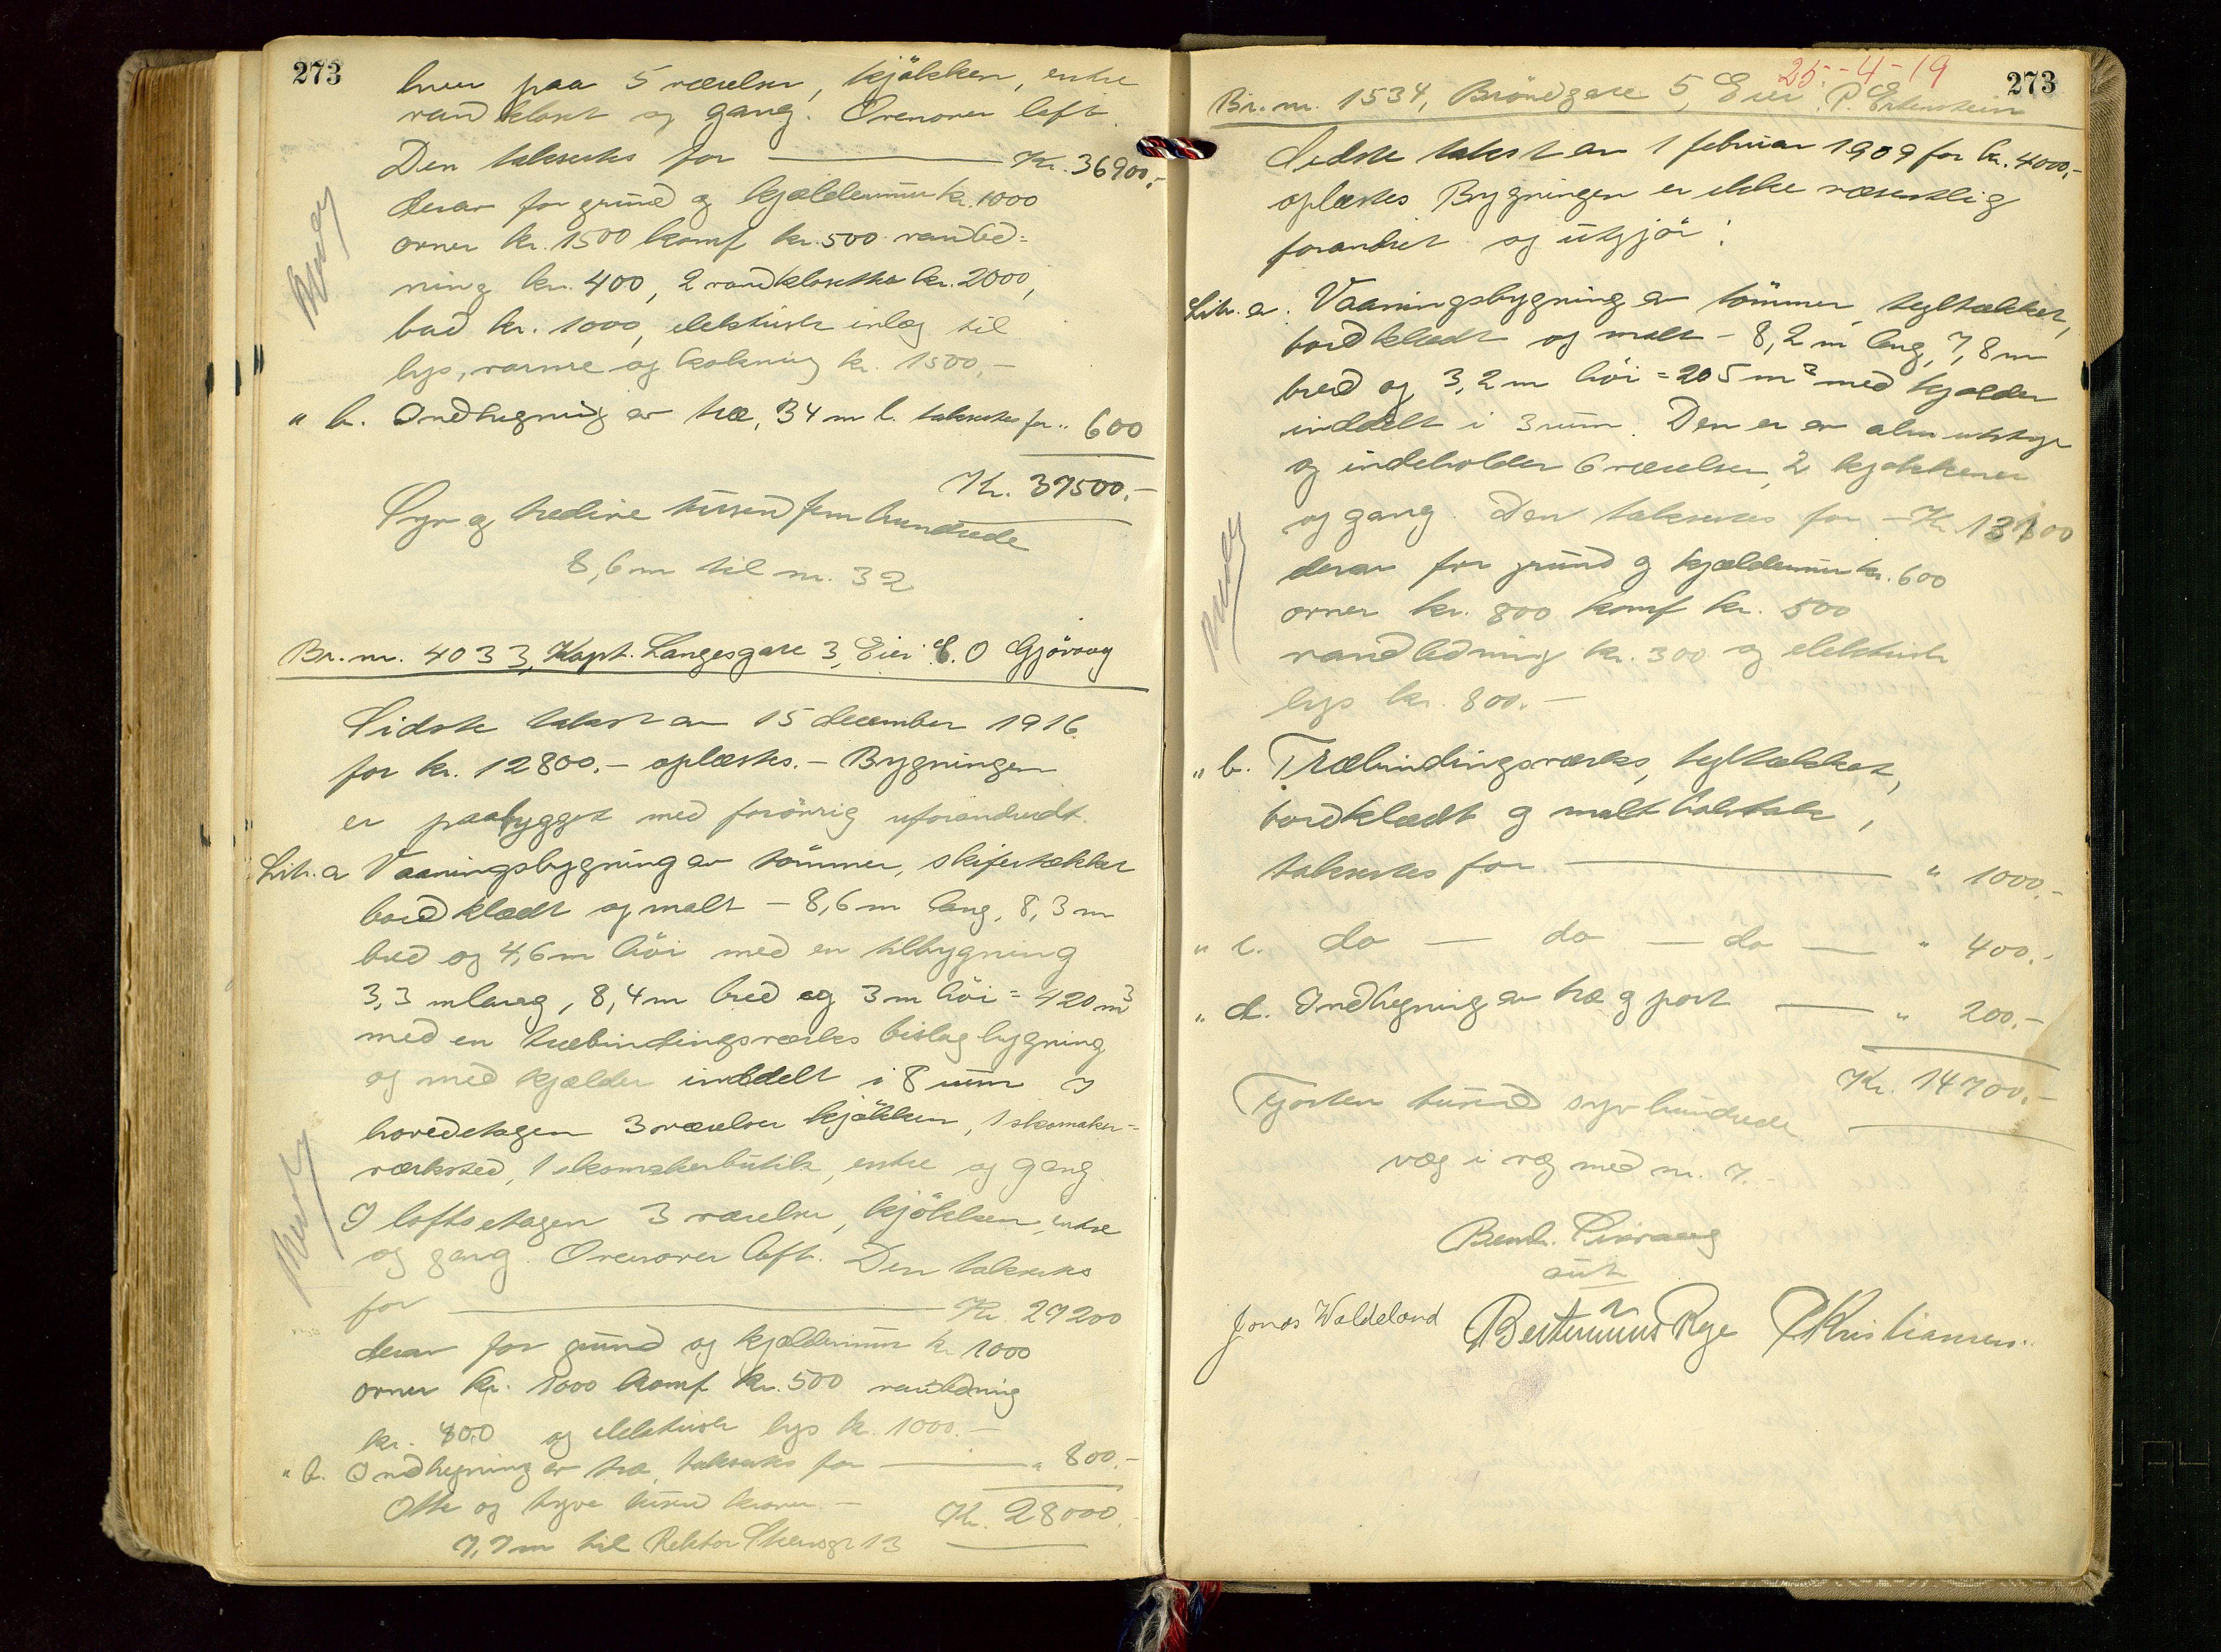 273
hver paa 5 værelser, kjökken, entre
vandkloset og gang. Ovenover loft.
Den takseres for — Kr. 36900.-
derav for grund og kjældermur kr. 1000
ovner kr. 1500 komf kr. 500 vandled=
ning kr. 400, 2 vandklosetter kr. 2000,
bad kr. 1000, elektrisk inlæg til
lys, varme og kokning kr. 1500.-
" b. Indhegning av træ, 34 m l. takseres for " 600
Kr. 37500.-
Syv og tredive tusend fem hundrede
8,6 m til nr. 32
Br. nr. 4033, Kapt. Langesgate 3, Eier E. O Gjövaag
Sidste takst av 15 december 1916
for kr. 12800.- oplæstes. - Bygningen
er paabygget med forövrig uforandredt.
Litr. a Vaaningsbygning av tömmer, skifertækket
bordklædt og malt - 8,6 m lang, 8,3 m
bred og 4,6 m höi med en tilbygning
3,3 m lang, 8,4 m bred og 3 m höi = 420 m3
med en træbindingsverks bislagbygning
og med kjælder inddelt i 8 rum I
hovedetagen 3 værelser kjökken, 1 skomaker-
verksted, 1 skomakerbutik, entre og gang.
I loftsetagen 3 værelser, kjökken, entre
og gang. Ovenover loft. Den takseres
for — Kr. 27200
derav for grund og kjældermur kr 1000
ovner kr. 1000 komf kr. 500 vandledning
kr. 400 og elektrisk lys kr. 1000.-
" b. Indhegning av træ, takseres for — " 800.-
Otte og tyve tusend kroner. - Kr. 28000.-
7,7 m til Rektor Steensgt 13
25.-4-19
273
Br. nr. 1534, Bröndgate 5, Eier P.
Sidste takst av 1 februar 1909 for kr. 4000,-
oplæstes Bygningen er ikke væsentlig
forandret og utgjör:
Litr. a. Vaaningsbygning av tömmer tegltækket,
bordklædt og malt - 8,2 m lang, 7,8 m
bred og 3,2 m höi = 205 m3 med kjælder
inddelt i 3 rum. Den er av alm utstyr
og indeholder 6 værelser, 2 kjökkener
og gang. Den takseres for - Kr. 13100
derav for grund og kjældermur kr. 600
ovner kr. 800 komf kr. 500
vandledning kr. 300 og elektrisk
lys kr. 800.-
" b. Træbindingsverks, tegltækket,
bordklædt og malt halvtak,
takseres for — " 1000.-
" c. do — do — do — " 400.-
" d. Indhegning av træ og port — " 200.-
Kr. 14700.-
Fjorten tusend syv hundrede
væg i væg med nr. 7.-
Jonas Waldeland Bertinius Rege P Kristiansen.